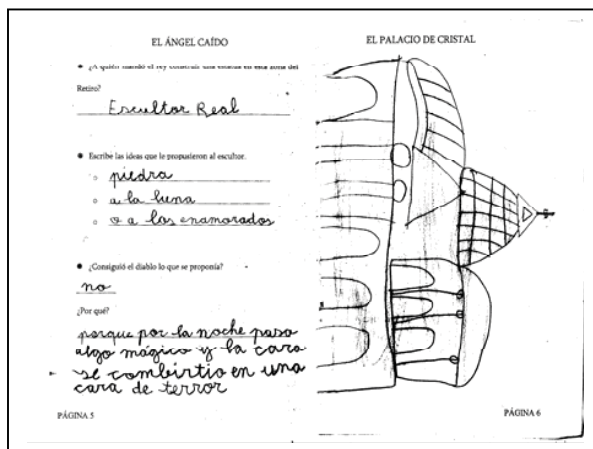 EL ÁNGEL CAÍDO
¿A quién mandó el rey construir una estatua en esta zona del
Retiro?
Escultor Real
Escribe las ideas que le propusieron al escultor.
piedra
a la luna
o a los enamorados
¿Consiguió el diablo lo que se proponía?
no
¿Por qué?
porque por la noche paso
algo mágico y la cara
se combirtio en una
cara de terror
PÁGINA 5
EL PALACIO DE CRISTAL
PÁGINA 6